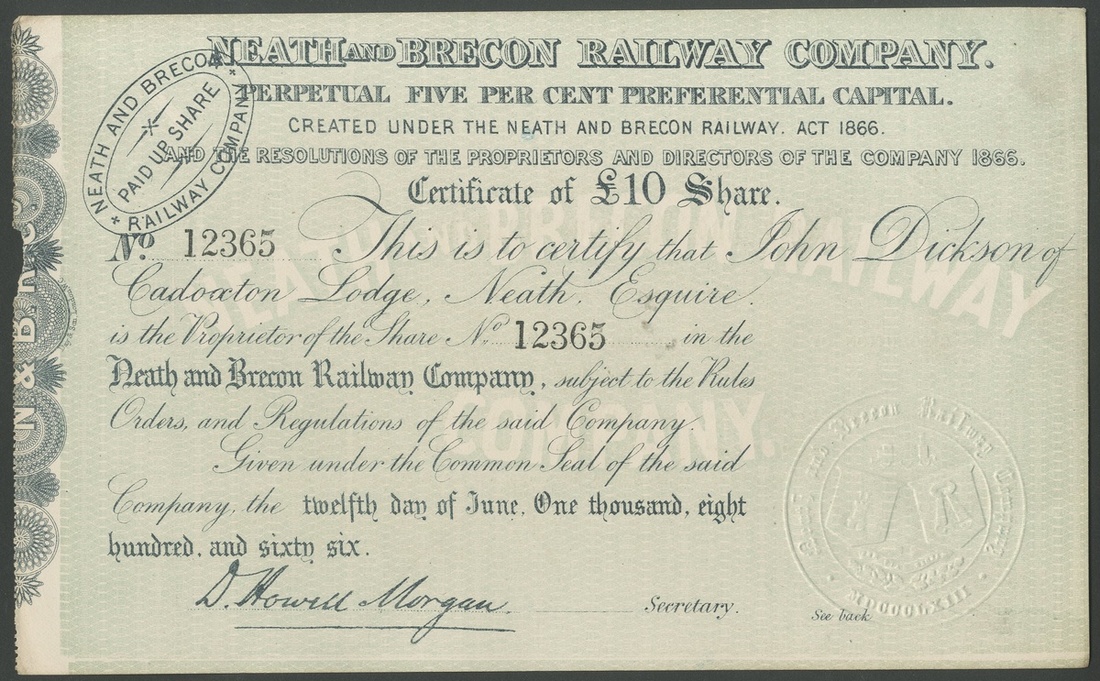 NEATH AND BRECON RAILWAY COMPANY.
PERPETUAL FIVE PER CENT PREFERENTIAL CAPITAL.
CREATED UNDER THE NEATH AND BRECON RAILWAY. ACT 1866.
AND THE RESOLUTIONS OF THE PROPRIETORS AND DIRECTORS OF THE COMPANY 1866.
NEATH AND BRECON
PAID UP SHARE
RAILWAY COMPANY
Certificate of £10 Share.
No. 12365 This is to certify that John Dickson of
Cadoxton Lodge, Neath. Esquire.
is the Proprietor of the Share No. 12365 in the
Neath and Brecon Railway Company, subject to the Rules
Orders, and Regulations of the said Company.
Given under the Common Seal of the said
Company, the twelfth day of June, One thousand, eight
hundred, and sixty six.
D. Howell Morgan. Secretary.
See back
NEATH AND BRECON RAILWAY
COMPANY.
N & BR
Neath and Brecon Railway Company
MDCCCLXIII